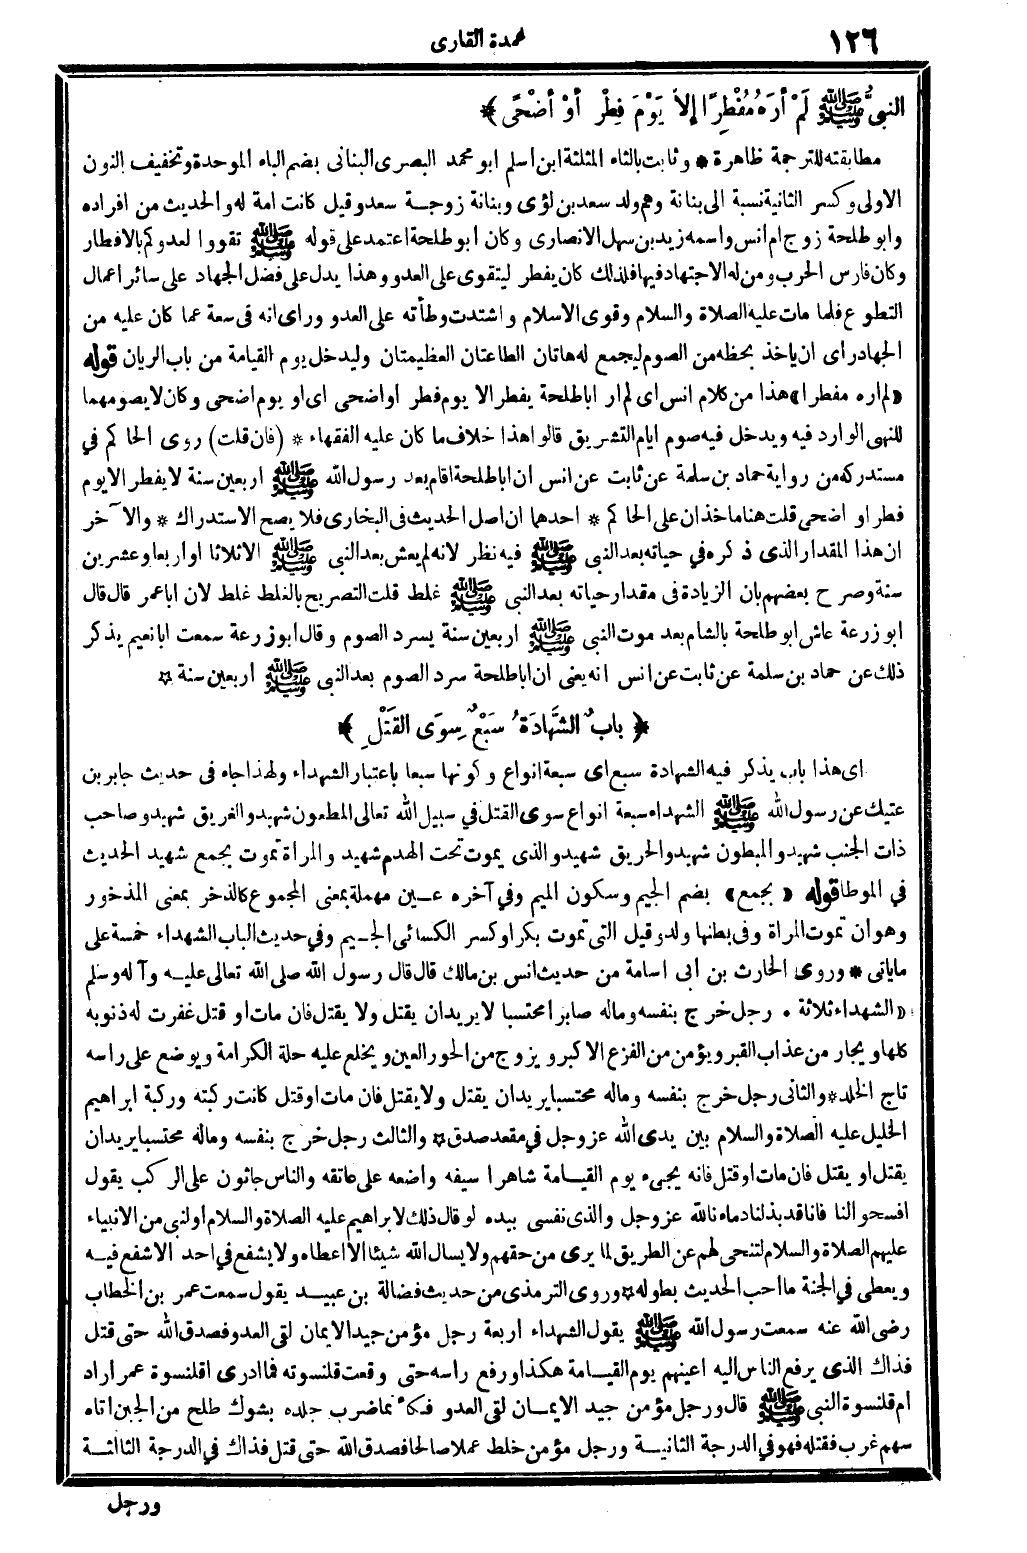 ١٢٦ عمدة القارى
النبيُّ ﷺ لَمْ أَرَهُ مُفْطِرًا إِلاَّ يَوْمَ فِطْرٍ أَوْ أَضْحَى ﴾
مطابقته للترجمة ظاهرة * وثابت بالثاء المثلثة ابن اسلم ابو محمد البصرى البنانى بضم الباء الموحدة وتخفيف النون
الاولى وكسر الثانية نسبة الى بنانة وهم ولد سعد بن لؤى وبنانة زوجة سعد وقيل كانت امة له والحديث من افراده
وابو طلحة زوج ام انس واسمه زيد بن سهل الانصارى وكان ابو طلحة اعتمد على قوله ﷺ تقووا لعدوكم بالافطار
وكان فارس الحرب ومن له الاجتهاد فيها فلذلك كان يفطر ليتقوى على العدو وهذا يدل على فضل الجهاد على سائر اعمال
التطوع فلما مات عليه الصلاة والسلام وقوى الاسلام واشتدت وطأته على العدو وراى انه فى سعة عما كان عليه من
الجهاد راى ان ياخذ بحظه من الصوم ليجمع له هاتان الطاعتان العظيمتان وليدخل يوم القيامة من باب الريان قوله
«لم اره مفطرا» هذا من كلام انس اى لم ار اباطلحة يفطر الا يوم فطر او اضحى اى او يوم اضحى وكان لا يصومهما
للنهى الوارد فيه ويدخل فيه صوم ايام التشريق قالوا هذا خلاف ما كان عليه الفقهاء * (فان قلت) روى الحاكم في
مستدركه من رواية حماد بن سلمة عن ثابت عن انس ان اباطلحة اقام بعد رسول الله ﷺ اربعين سنة لا يفطر الا يوم
فطر او اضحى قلت هنا ماخذان على الحاكم * احدهما ان اصل الحديث فى البخارى فلا يصح الاستدراك * والآخر
ان هذا المقدار الذى ذكره في حياته بعد النبى ﷺ فيه نظر لانه لم يعش بعد النبى ﷺ الا ثلاثا او اربعا وعشرين
سنة وصرح بعضهم بان الزيادة فى مقدار حياته بعد النبى ﷺ غلط قلت التصريح بالغلط غلط لان اباعمر قال قال
ابو زرعة عاش ابو طلحة بالشام بعد موت النبى ﷺ اربعين سنة يسرد الصوم وقال ابو زرعة سمعت ابا نعيم يذكر
ذلك عن حماد بن سلمة عن ثابت عن انس انه يعنى ان اباطلحة سرد الصوم بعد النبى ﷺ اربعين سنة *
﴿ بابٌ الشَّهَادَةُ سَبْعٌ سِوَى القَتْلِ ﴾
اى هذا باب يذكر فيه الشهادة سبع اى سبعة انواع وكونها سبعا باعتبار الشهداء ولهذا جاء فى حديث جابر بن
عتيك عن رسول الله ﷺ الشهداء سبعة انواع سوى القتل في سبيل الله تعالى المطعون شهيد والغريق شهيد وصاحب
ذات الجنب شهيد والمبطون شهيد والحريق شهيد والذى يموت تحت الهدم شهيد والمراة تموت بجمع شهيد الحديث
في الموطا قوله «بجمع» بضم الجيم وسكون الميم وفي آخره عين مهملة بمعنى المجموع كالذخر بمعنى المذخور
وهو ان تموت المراة وفى بطنها ولد وقيل التى تموت بكرا وكسر الكسائى الجيم وفي حديث الباب الشهداء خمسة على
ماياتى * وروى الحارث بن ابى اسامة من حديث انس بن مالك قال قال رسول الله صلى الله تعالى عليه وآله وسلم
«الشهداء ثلاثة * رجل خرج بنفسه وماله صابرا محتسبا لا يريد ان يقتل ولا يقتل فان مات او قتل غفرت له ذنوبه
كلها ويجار من عذاب القبر ويؤمن من الفزع الاكبر ويزوج من الحور العين ويخلع عليه حلة الكرامة ويوضع على راسه
تاج الخلد * والثانى رجل خرج بنفسه وماله محتسبا يريد ان يقتل ولا يقتل فان مات او قتل كانت ركبته وركبة ابراهيم
الخليل عليه الصلاة والسلام بين يدى الله عز وجل في مقعد صدق * والثالث رجل خرج بنفسه وماله محتسبا يريد ان
يقتل او يقتل فان مات او قتل فانه يجىء يوم القيامة شاهرا سيفه واضعه على عاتقه والناس جاثون على الركب يقول
افسحوا لنا فانا قد بذلنا دماءنا لله عز وجل والذى نفسى بيده لو قال ذلك لابراهيم عليه الصلاة والسلام او لنبى من الانبياء
عليهم الصلاة والسلام لتنحى لهم عن الطريق لما يرى من حقهم ولا يسال الله شيئا الا اعطاه ولا يشفع في احد الا شفع فيه
ويعطى في الجنة ما احب الحديث بطوله * وروى الترمذى من حديث فضالة بن عبيد يقول سمعت عمر بن الخطاب
رضى الله عنه سمعت رسول الله ﷺ يقول الشهداء اربعة رجل مؤمن جيد الايمان لقى العدو فصدق الله حتى قتل
فذاك الذى يرفع الناس اليه اعينهم يوم القيامة هكذا ورفع راسه حتى وقعت قلنسوته فما ادرى اقلنسوة عمر اراد
ام قلنسوة النبى ﷺ قال ورجل مؤمن جيد الايمان لقى العدو فكأنما ضرب جلده بشوك طلح من الجبن اتاه
سهم غرب فقتله فهو في الدرجة الثانية ورجل مؤمن خلط عملا صالحا فصدق الله حتى قتل فذاك في الدرجة الثالثة
ورجل